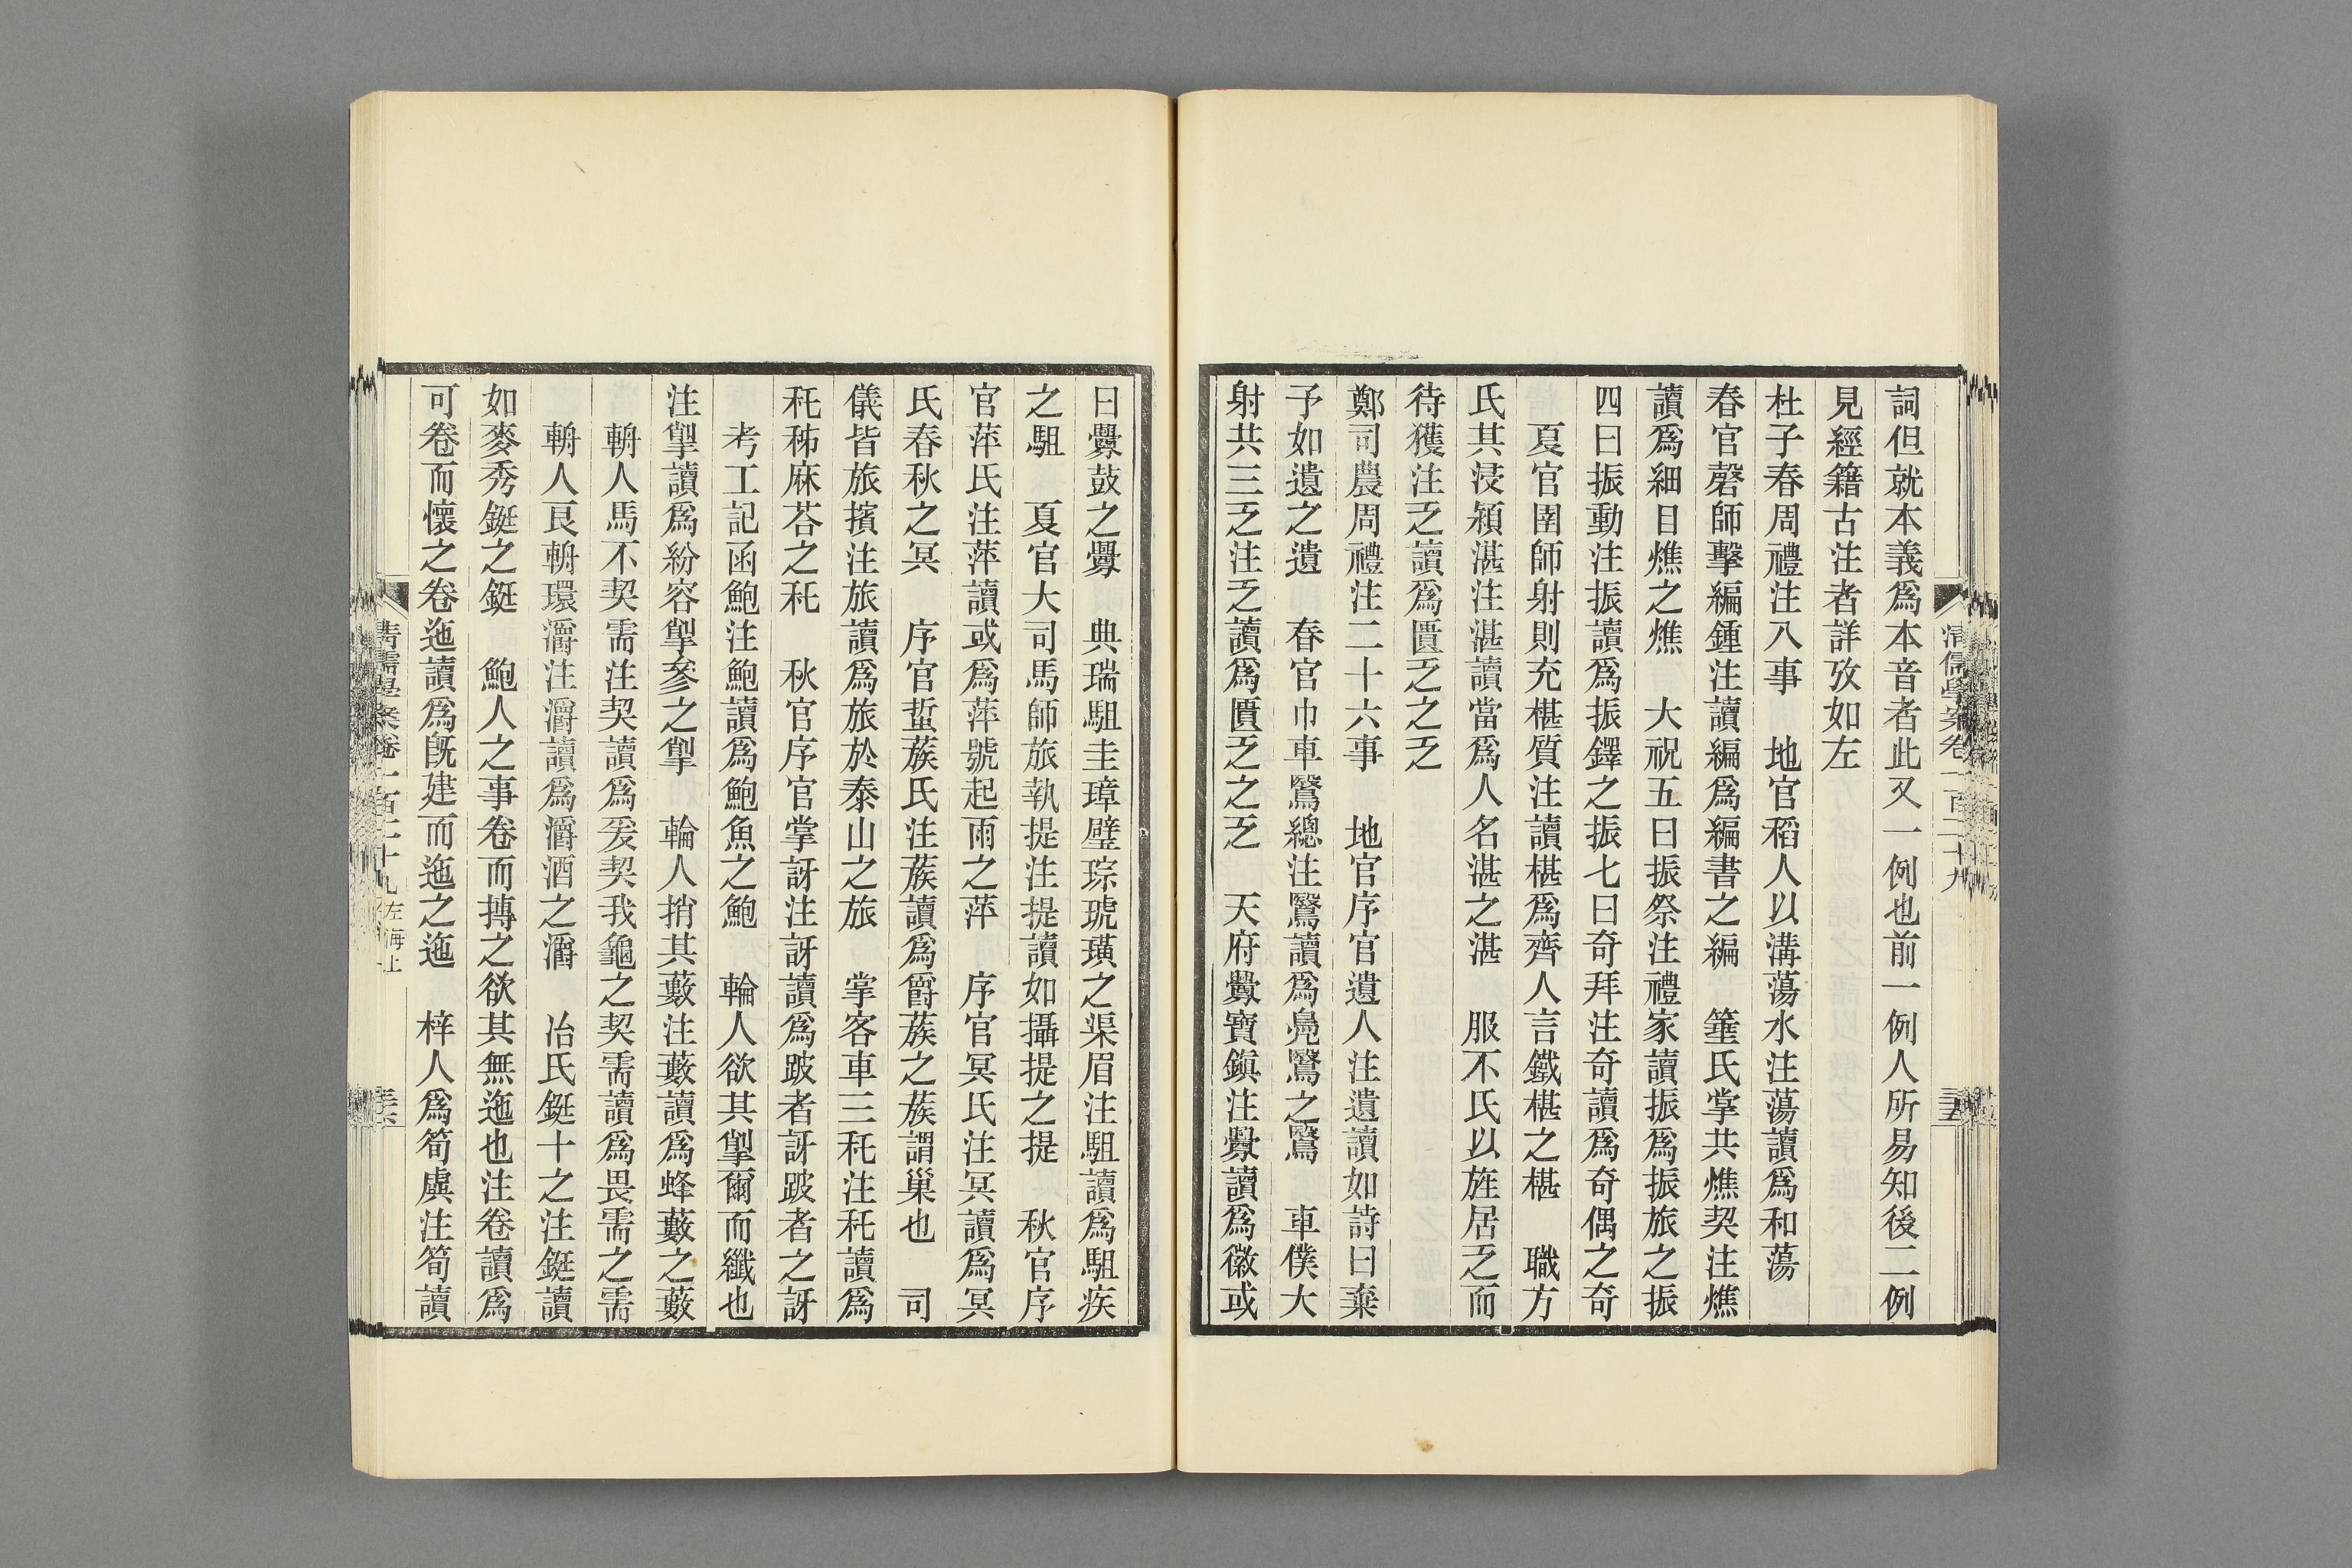 詞但就本義爲本音者此又一例也前一例人所易知後二例
見經籍古注者詳攷如左
杜子春周禮注八事　地官稻人以溝蕩水注蕩讀爲和蕩
春官磬師擊編鍾注讀編爲編書之編　菙氏掌共燋契注燋
讀爲細目燋之燋　大祝五曰振祭注禮家讀振爲振旅之振
四曰振動注振讀爲振鐸之振七曰奇拜注奇讀爲奇偶之奇
夏官圉師射則充椹質注讀椹爲齊人言鐵椹之椹　職方
氏其浸潁湛注湛讀當爲人名湛之湛　服不氏以旌居乏而
待獲注乏讀爲匱乏之乏
鄭司農周禮注二十六事　地官序官遺人注遺讀如詩曰棄
予如遺之遺　春官巾車鷖總注鷖讀爲鳧鷖之鷖　車僕大
射共三乏注乏讀爲匱乏之乏　天府釁寶鎭注釁讀爲徽或
曰釁鼓之釁　典瑞駔圭璋璧琮琥璜之渠眉注駔讀爲駔疾
之駔　夏官大司馬師旅執提注提讀如攝提之提　秋官序
官萍氏注萍讀或爲萍號起雨之萍　序官冥氏注冥讀爲冥
氏春秋之冥　序官蜇蔟氏注蔟讀爲爵蔟之蔟謂巢也　司
儀皆旅擯注旅讀爲旅於泰山之旅　掌客車三秅注秅讀爲
秅秭麻荅之秅　秋官序官掌訝注訝讀爲跛者訝跛者之訝
考工記函鮑注鮑讀爲鮑魚之鮑　輪人欲其掣爾而纖也
注掣讀爲紛容掣參之掣　輪人捎其藪注藪讀爲蜂藪之藪
輈人馬不契需注契讀爲爰契我龜之契需讀爲畏需之需
輈人良輈環灂注灂讀爲灂酒之灂　冶氏鋌十之注鋌讀
如麥秀鋌之鋌　鮑人之事卷而摶之欲其無迆也注卷讀爲
可卷而懷之卷迆讀爲旣建而迆之迆　梓人爲筍虡注筍讀
清儒學案卷一百二十九
清儒學案卷一百二十九　左海上